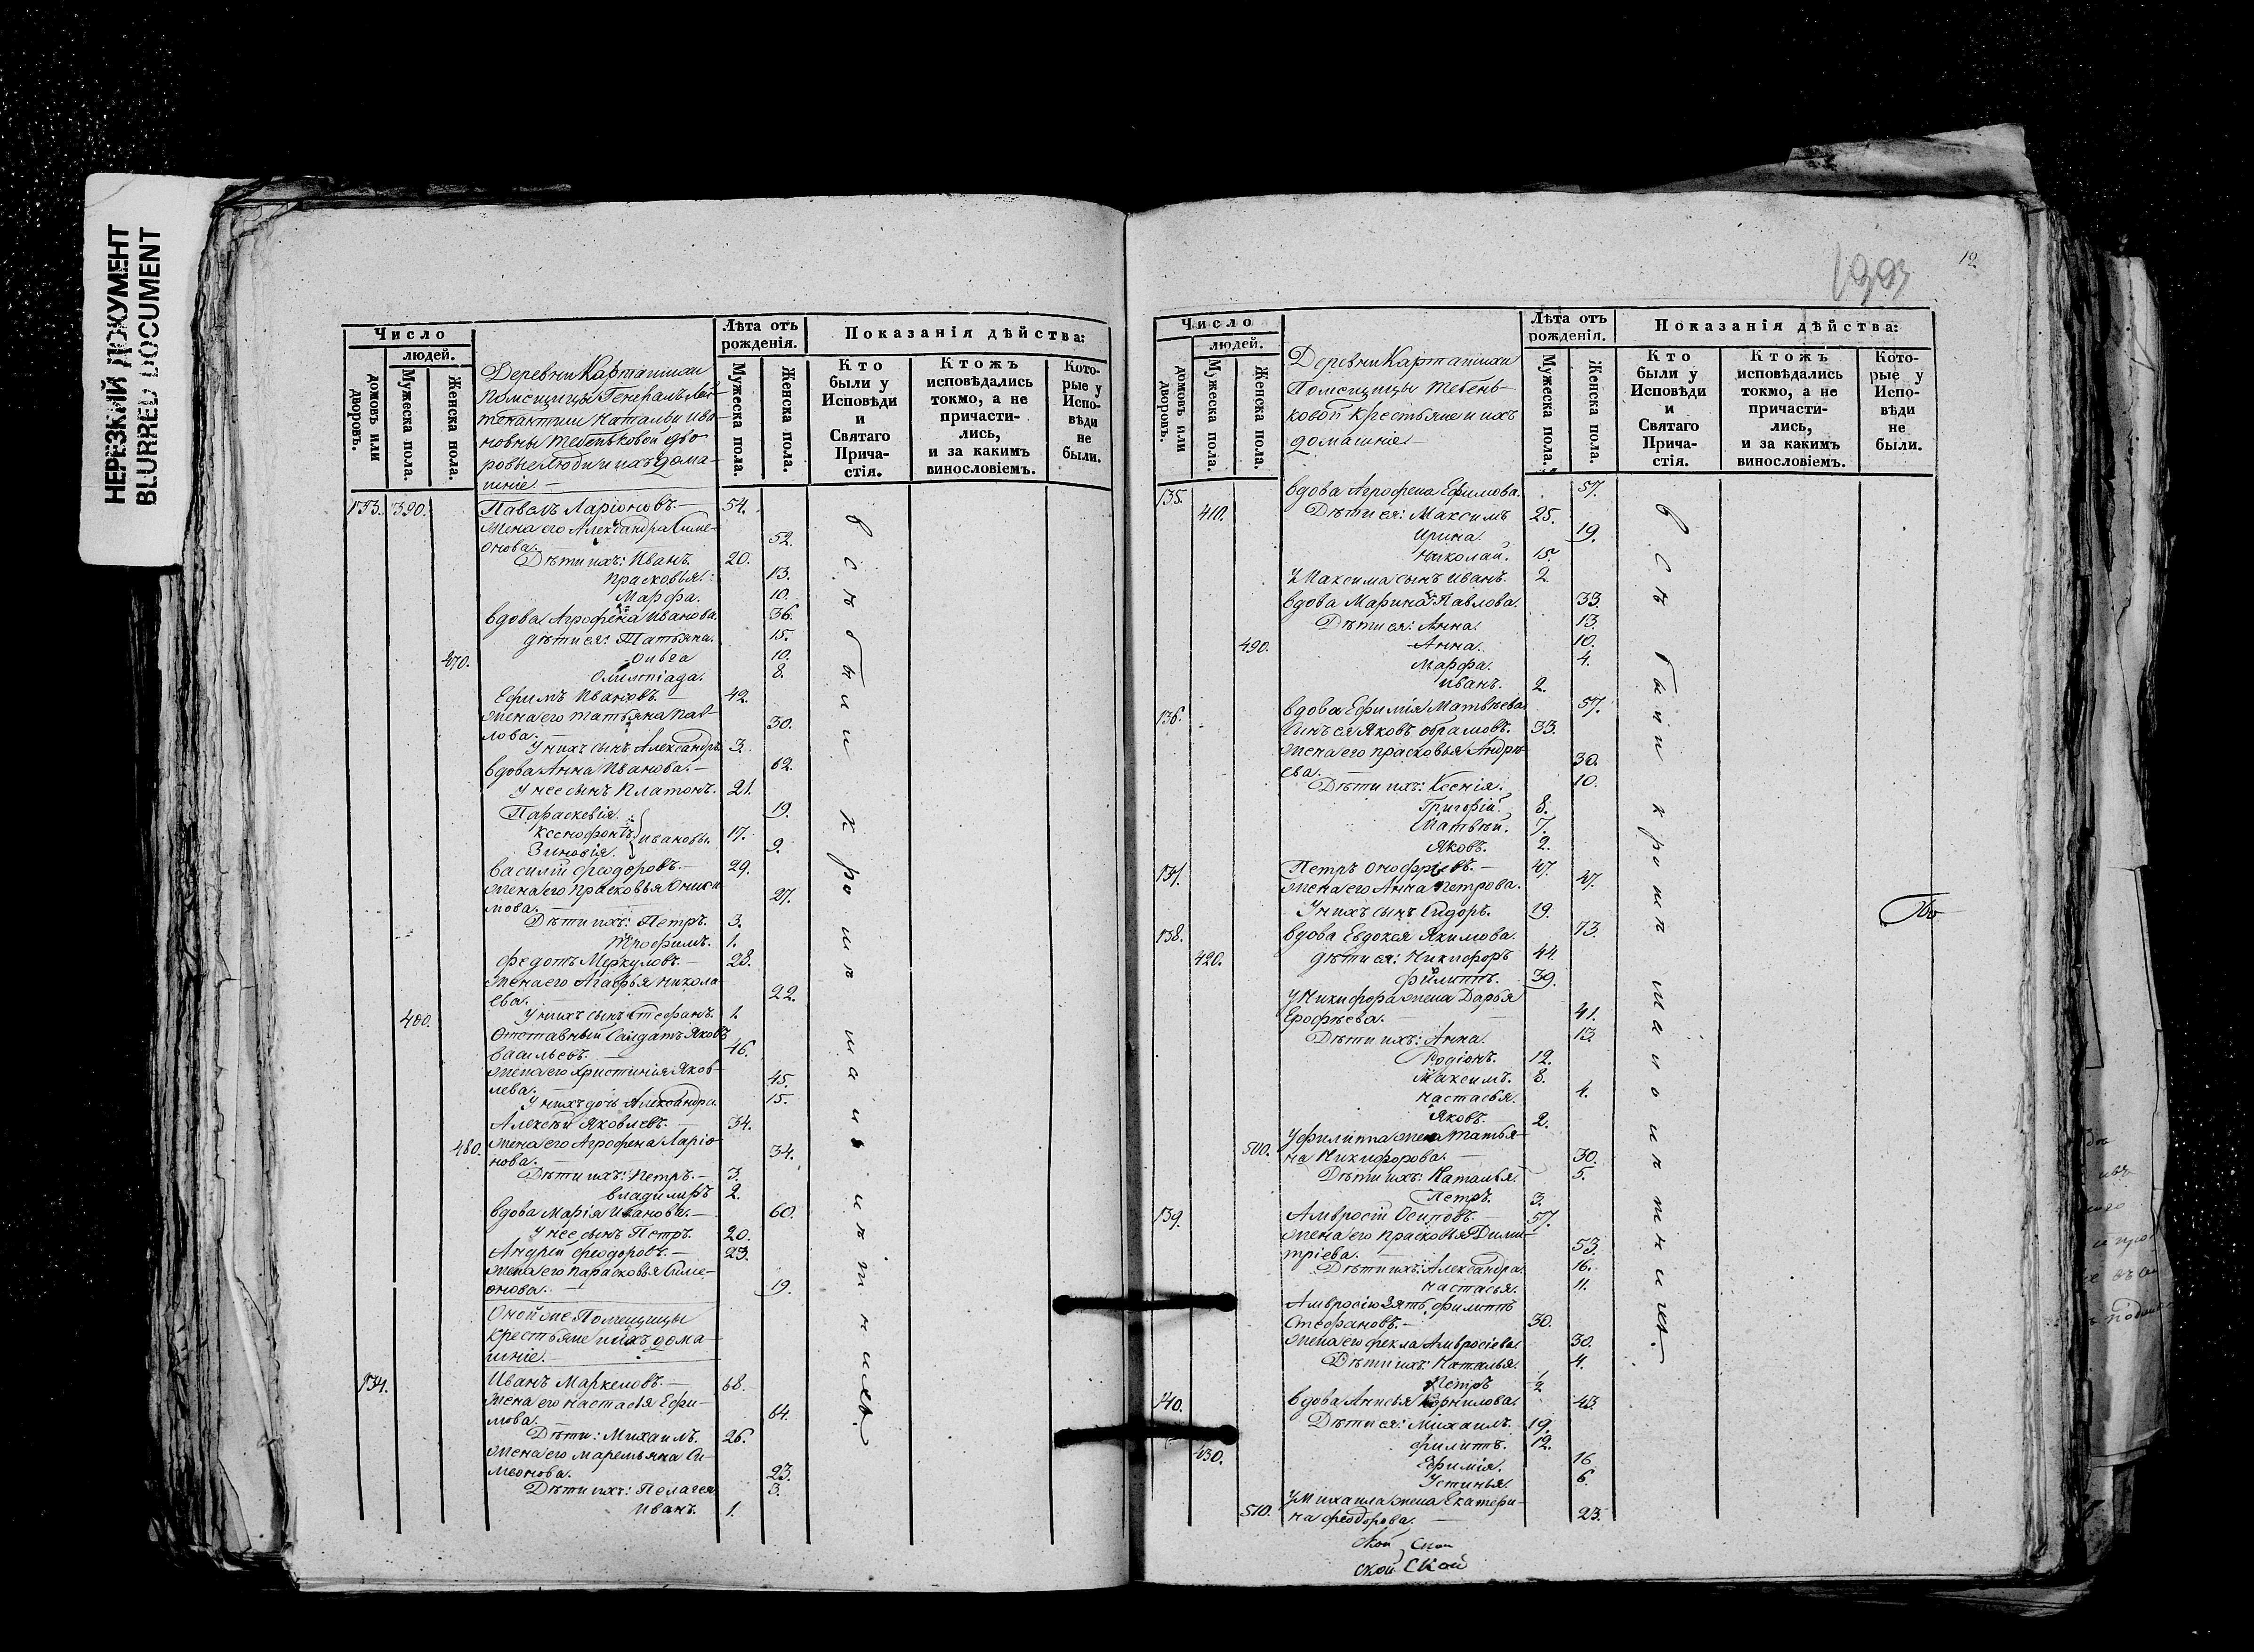 НЕРЕЗКИЙ ДОКУМЕНТ
BLURRED DOCUMENT
Число
людей.
домовъ или дворовъ.
Мужеска пола.
Женска пола.
Деревни Карташихи
Помещицы Генералъ Лей-
тенантши Натальи Ива
новны Тебеньковой дво
ровые люди и ихъ дома-
шніе.—
Лѣта отъ рожденія.
Мужеска пола.
Женска пола.
Показанія дѣйства:
Кто были у Исповѣди и Святаго Прича-стія.
Ктожъ исповѣдались токмо, а не причасти-лись, и за какимъ винословіемъ.
Кото-рые у Испо-вѣди не были.
133. 390. Павелъ Ларіоновъ.— 54.
Жена его Александра Симе-
онова.— 52.
Дѣти ихъ: Иванъ. 20.
Прасковья. 13.
Марфа. 10.
Вдова Агрофена Иванова. 36.
Дѣти ея: Татьяна. 15.
470. Ольга 10.
Олимпіада. 8.
Ефимъ Ивановъ.— 42.
Жена его Татьяна Пав-
лова.— 30.
У нихъ сынъ Александръ. 3.
Вдова Анна Иванова.— 62.
У нее сынъ Платонъ. 21.
Параскевія. 19.
Ксенофонтъ. Ивановы. 17.
Зиновія. 9.
Василій Феодоровъ.— 29.
Жена его Прасковья Оники-
мова.— 27.
Дѣти ихъ: Петръ. 3.
Трофимъ. 1.
Федотъ Меркуловъ.— 28.
Жена его Агафья Никола
ева. 22.
400. У нихъ сынъ Стефанъ. 1.
Отставный Солдатъ Яковъ
Васильевъ.— 46.
Жена его Христинія Яков-
лева.— 45.
У нихъ дочь Александра. 15.
Алексѣй Яковлевъ. 34.
480. Жена его Агрофена Ларіо-
нова.— 34.
Дѣти ихъ: Петръ.— 3.
Владиміръ 2.
Вдова Марія Иванова.— 60.
У нее сынъ Петръ. 20.
Андрей Феодоровъ.— 23.
Жена его Парасковья Симе-
онова.— 19.
Оной же Помещицы
Крестьяне и ихъ дома-
шніе.—
134. Иванъ Маркеловъ.— 68.
Жена его Настасья Ефи-
мова.— 64.
Дѣти: Михаилъ. 26.
Жена его Маремьяна Си-
меонова. 23.
Дѣти ихъ: Пелагея 3.
Иванъ. 1.
всѣ были кромѣ малолѣтнихъ
12
Число
людей.
домовъ или дворовъ.
Мужеска пола.
Женска пола.
Деревни Карташихи
Помещицы Тебень-
ковой Крестьяне и ихъ
домашніе—
Лѣта отъ рожденія.
Мужеска пола.
Женска пола.
Показанія дѣйства:
Кто были у Исповѣди и Святаго Прича-стія.
Ктожъ исповѣдались токмо, а не причасти-лись, и за какимъ винословіемъ.
Кото-рые у Испо-вѣди не были.
135. Вдова Агрофена Ефимова. 57.
410. Дѣти ея: Максимъ 25.
Ирина. 19.
Николай. 15.
У Максима сынъ Иванъ. 2.
Вдова Марина Павлова. 33.
Дѣти ея: Анна. 13.
490. Анна. 10.
Марфа. 4.
Иванъ. 2.
136. Вдова Ефимія Матвѣева 57.
Сынъ ея Яковъ Обрамовъ. 33.
Жена его Прасковья Андрѣ
ева.— 30.
Дѣти ихъ: Ксенія. 10.
Григорій. 8.
Матвѣй. 7.
Яковъ. 2.
137. Петръ Онофріевъ.— 47.
Жена его Анна Петрова. 47.
У нихъ сынъ Сидоръ. 19.
138. Вдова Евдокея Якимова. 73.
420. Дѣти ея: Никифоръ 44.
Филиппъ. 39.
У Никифора жена Дарья
Ерофѣева.— 41.
Дѣти ихъ: Анна. 13.
Родіонъ. 12.
Максимъ. 8.
Настасья. 4.
Яковъ. 2.
У Филиппа жена Татья-
500. на Никифорова.— 30.
Дѣти ихъ: Наталья. 5.
Петръ. 3.
139. Амвросій Осиповъ.— 57.
Жена его Прасковья Дими-
тріева.— 53.
Дѣти ихъ: Александра. 16.
Настасья. 11.
Амвросію Зять Филиппъ
Стефановъ.— 30.
Жена его Фекла Амвросіева. 30.
Дѣти ихъ: Наталья. 4.
Петръ 1/2
140. Вдова Анисья Корнилова. 43.
Дѣти ея: Михаилъ. 19.
430. Филиппъ. 12.
Ефимія. 16
Устинья. 6.
У Михаила жена Екатери-
510. на Феодорова.— 23.
всѣ были кромѣ малолѣтнихъ.
ской ской